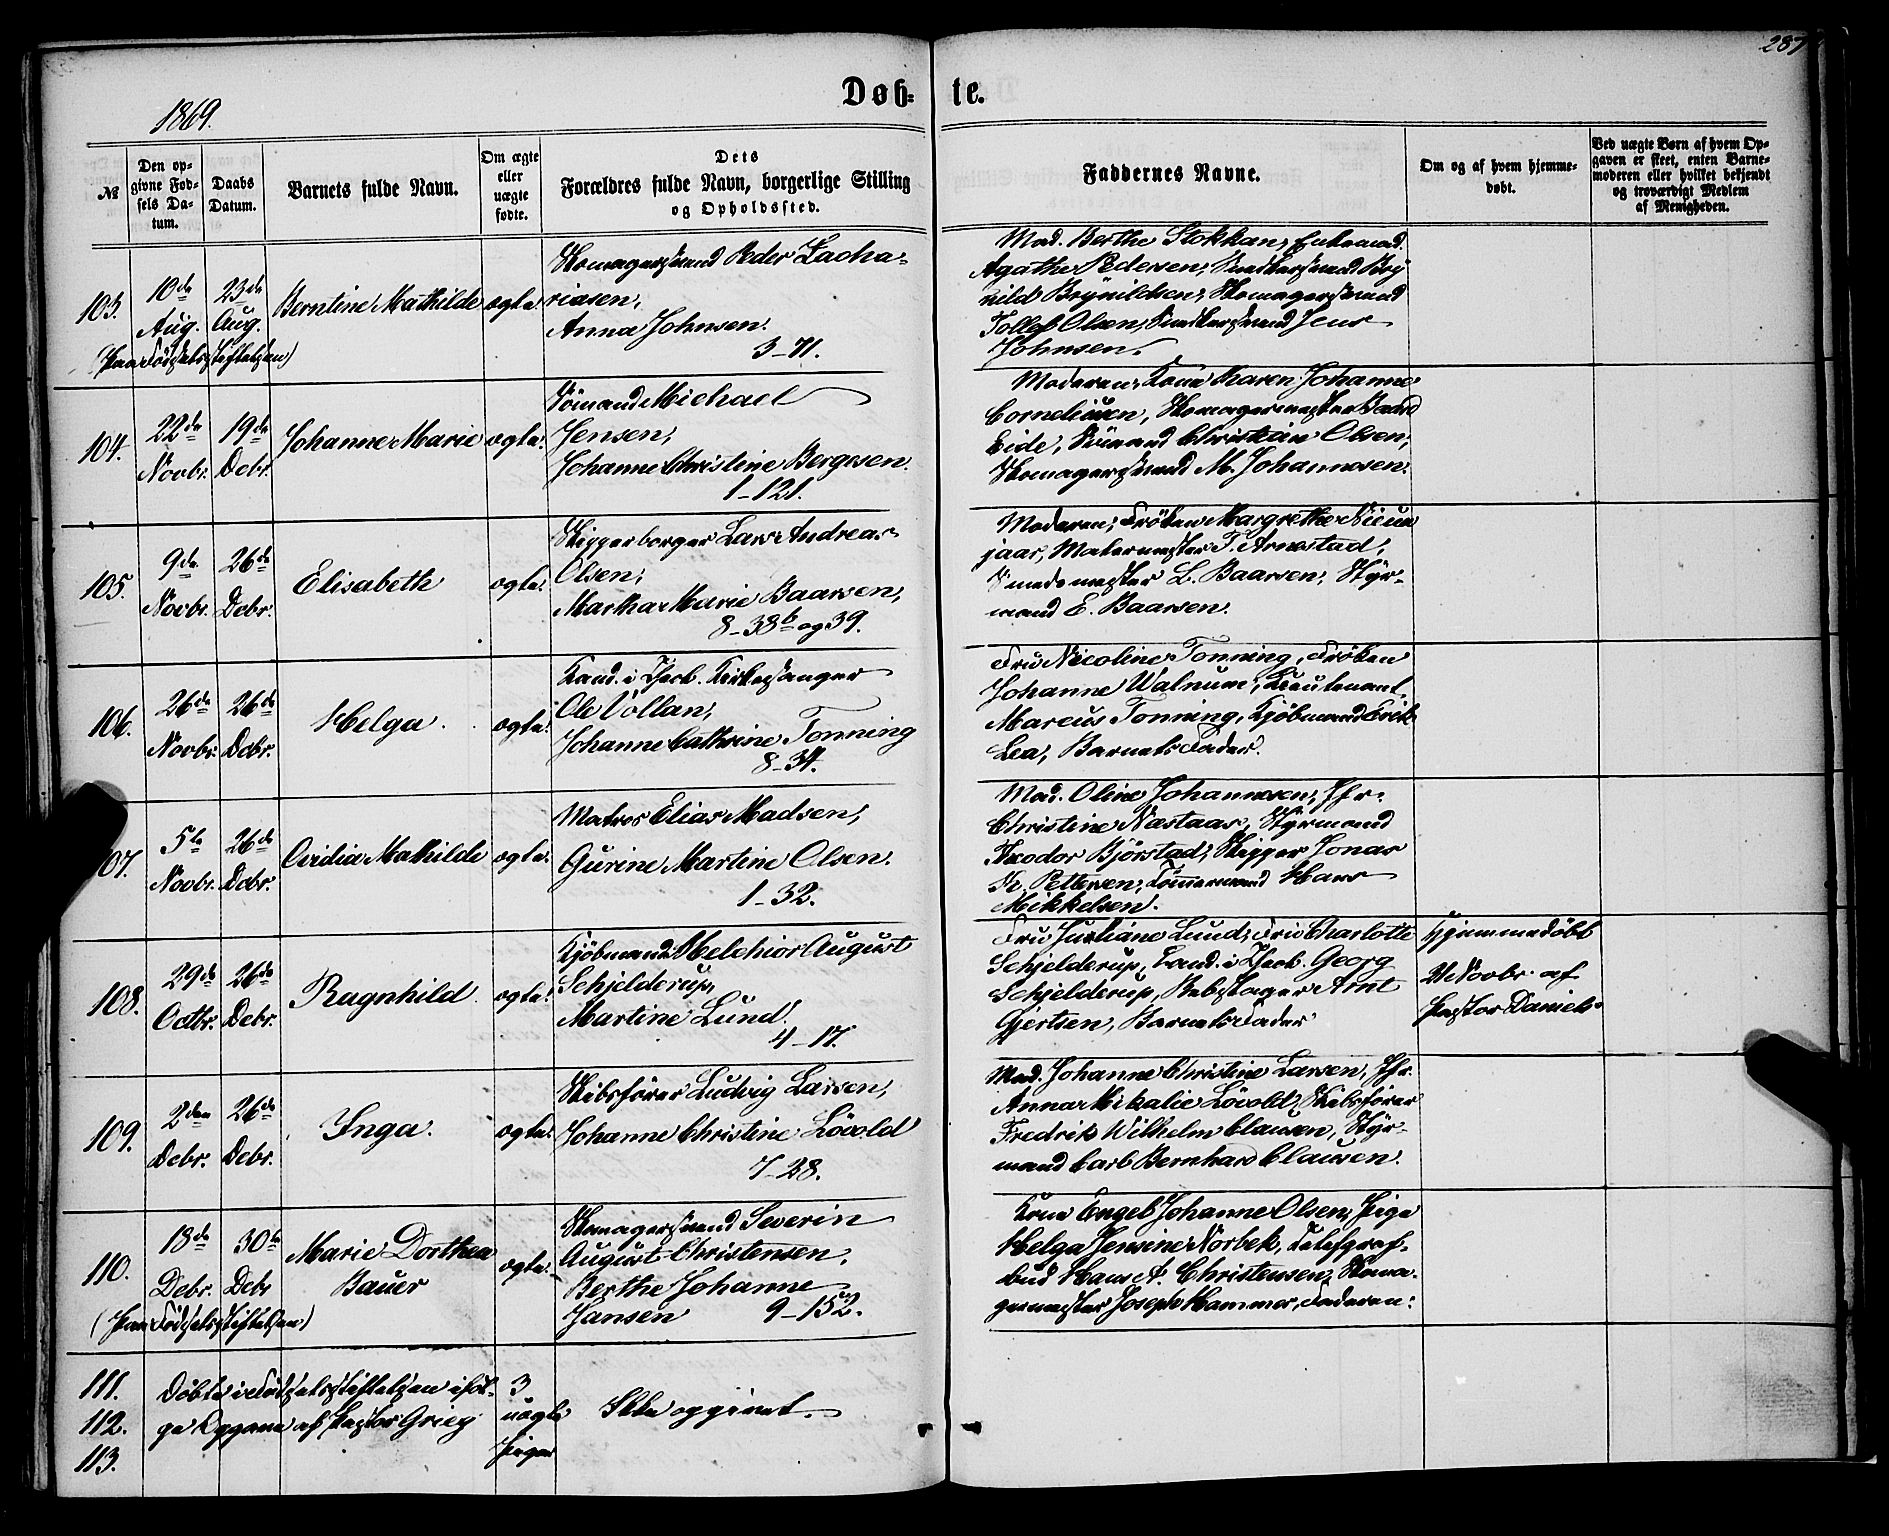 287
1869.
Døb-te.
№
Den op-
givne Fød-
sels Da-
tum.
Daabs
Datum.
Barnets fulde Navn.
Om ægte
eller
uægte
fødte.
Dets
Forældres fulde Navn, borgerlige Stilling
og Opholdssted.
Faddernes Navne.
Om og af hvem hjemme-
døbt.
Ved uægte Børn af hvem Op-
gaven er skeet, enten Barne-
moderen eller hvilket bekjendt
og troværdigt Medlem
af Menigheden.
103.
10de
Aug.
23de
Aug.
(paa Fødselsstiftelsen)
Berntine Mathilde
ægte.
Skomagersvend Peder Zacha-
riasen,
Anna Johnsen.
3-71.
Mad. Berthe Stokkan, Enkemad.
Agathe Pedersen, Snedkersvend Bry
nild Brynildsen, Skomagersvend
Tollef Olsen, Snedkersvend Jens
Johnsen.
104.
22de
Novbr.
19de
Debr.
Johanne Marie
ægte.
Sömand Michael
Jensen,
Johanne Christine Bergesen.
1-121.
Moderen, Kone Karen Johanne
Corneliusen, Skomagermester Baard
Eide, Sömand Christian Olsen,
Skomagersvend M. Johannesen.
105.
9de
Novbr.
26de
Debr.
Elisabeth
ægte.
Skipperborger Lars Andreas
Olsen,
Martha Marie Baarsen,
8-38b og 39.
Moderen, Fröken Margrethe Nicun
jaar, Malermester T. Arnestad,
Smedemester L. Baarsen, Styr-
mand E. Baarsen.
106.
26de
Novbr.
26de
Debr.
Helga.
ægte.
Kand. i Theol. Kirkesanger
Ole Vollan,
Johanne Cathrine Tonning
8-34.
Fru Nicoline Tonning, Fröken
Johanne Walnum, Lieutenant
Marcus Tonning, Kjöbmand Erik
Lea, Barnets Fader.
107.
5te
Novbr.
26de
Debr.
Ovidia Mathilde
ægte.
Matros Elias Madsen,
Gurine Martine Olsen.
1-32.
Mad. Oline Johannesen, Jfr.
Christine Næstaas, Styrmand
Theodor Bjørstad, Skipper Jonas
Fr. Pettersen, Tömmermand Hans
Mikkelsen.
108.
29de
Octbr.
26de
Debr.
Ragnhild.
ægte.
Kjöbmand Melchior August
Schjelderup,
Martine Lund.
4-17.
Fru Juliane Lund, Fru Charlotte
Schjelderup, Cand. i Theol. Georg
Schjelderup, Rebslager Arnt
Gjertsen, Barnets Fader
Hjemmedöbt
Novbr. af
Pastor Daniels-
109.
2den
Debr.
26de
Debr.
Inga.
ægte.
Skibsförer Ludvig Larsen,
Johanne Christine Lövold
7-28.
Mad. Johanne Christine Larsen, Jfr.
Anna Mikalie Lövold, Skibsförer
Fredrik Wilhelm Clausen, Styr-
mand Carl Bernhard Clausen.
110.
18de
Debr.
30te
Debr
(paa Födselsstiftelsen)
Marie Dorthea
Bauer
ægte.
Skomagersvend Severin
August Christensen,
Berthe Johanne
Jansen
9-152.
Kone Engel Johanne Olsen, Pige
Helga Jensine Norbek, Telegraf-
bud Hans A. Christensen, Skoma-
germester Joseph Hammer, Faderen.
111.
112.
113.
Döbte i Födselsstiftelsen iföl-
ge Opgave af Pastor Grieg
3
uægte
Piger
Ikke opgivet.